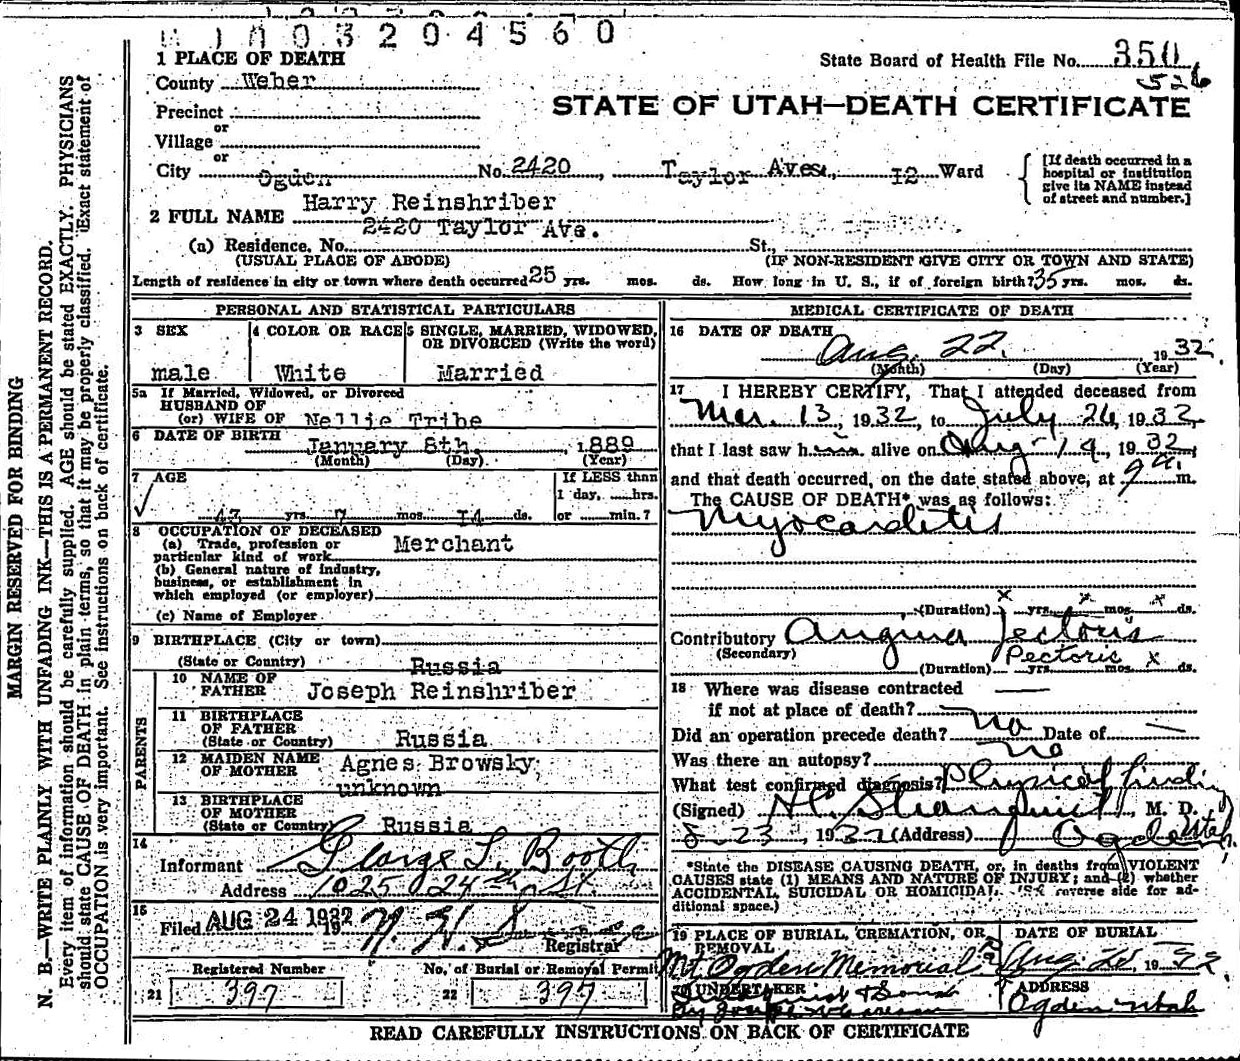 0 3 2 0 4 5 6 0
1 PLACE OF DEATH
State Board of Health File No. 350
526
County Weber
STATE OF UTAH—DEATH CERTIFICATE
Precinct
or
Village
or
City Ogden No. 2420, Taylor Ave., 12 Ward
[If death occurred in a hospital or institution give its NAME instead of street and number.]
2 FULL NAME Harry Reinshriber
2420 Taylor Ave.
(a) Residence, No. St.,
(USUAL PLACE OF ABODE) (IF NON-RESIDENT GIVE CITY OR TOWN AND STATE)
Length of residence in city or town where death occurred 25 yrs. mos. ds. How long in U. S., if of foreign birth? 35 yrs. mos. ds.
PERSONAL AND STATISTICAL PARTICULARS
3 SEX
male
4 COLOR OR RACE
White
5 SINGLE, MARRIED, WIDOWED, OR DIVORCED (Write the word)
Married
5a If Married, Widowed, or Divorced
HUSBAND OF
(or) WIFE OF Nellie Tribe
6 DATE OF BIRTH
January 8th, 1889
(Month) (Day) (Year)
7 AGE
If LESS than
1 day, hrs.
43 yrs. 7 mos. 14 ds. or min.?
8 OCCUPATION OF DECEASED
(a) Trade, profession or
particular kind of work Merchant
(b) General nature of industry,
business, or establishment in
which employed (or employer)
(c) Name of Employer
9 BIRTHPLACE (City or town)
(State or Country) Russia
PARENTS
10 NAME OF
FATHER Joseph Reinshriber
11 BIRTHPLACE
OF FATHER
(State or Country) Russia
12 MAIDEN NAME
OF MOTHER Agnes Browsky
unknown
13 BIRTHPLACE
OF MOTHER
(State or Country) Russia
14
Informant George L. Booth
Address 1025 24th St.
15
Filed AUG 24 1932 19
Registrar
Registered Number No. of Burial or Removal Permit
21 397 22 397
MEDICAL CERTIFICATE OF DEATH
16 DATE OF DEATH
Aug. 22, 1932
(Month) (Day) (Year)
17 I HEREBY CERTIFY, That I attended deceased from
Mar. 13, 1932, to July 26, 1932
that I last saw him alive on Aug 19, 1932,
and that death occurred, on the date stated above, at 9 a. m.
The CAUSE OF DEATH* was as follows:
Myocarditis
(Duration) x yrs. x mos. x ds.
Contributory Angina Pectoris
(Secondary)
Pectoris
(Duration) yrs. mos. x ds.
18 Where was disease contracted
if not at place of death?
Did an operation precede death? no Date of
Was there an autopsy? no
What test confirmed diagnosis? Physical finding
(Signed) M. D.
8 23 1932 (Address) Ogden Utah
*State the DISEASE CAUSING DEATH, or, in deaths from VIOLENT
CAUSES state (1) MEANS AND NATURE OF INJURY; and (2) whether
ACCIDENTAL, SUICIDAL OR HOMICIDAL. (See reverse side for ad-
ditional space.)
19 PLACE OF BURIAL, CREMATION, OR REMOVAL
Mt. Ogden Memorial
DATE OF BURIAL
Aug. 1932
20 UNDERTAKER
& Sons
By Joseph
ADDRESS
Ogden Utah
READ CAREFULLY INSTRUCTIONS ON BACK OF CERTIFICATE
MARGIN RESERVED FOR BINDING
N. B.—WRITE PLAINLY WITH UNFADING INK—THIS IS A PERMANENT RECORD.
Every item of information should be carefully supplied. AGE should be stated EXACTLY. PHYSICIANS
should state CAUSE OF DEATH in plain terms, so that it may be properly classified. Exact statement of
OCCUPATION is very important. See instructions on back of certificate.